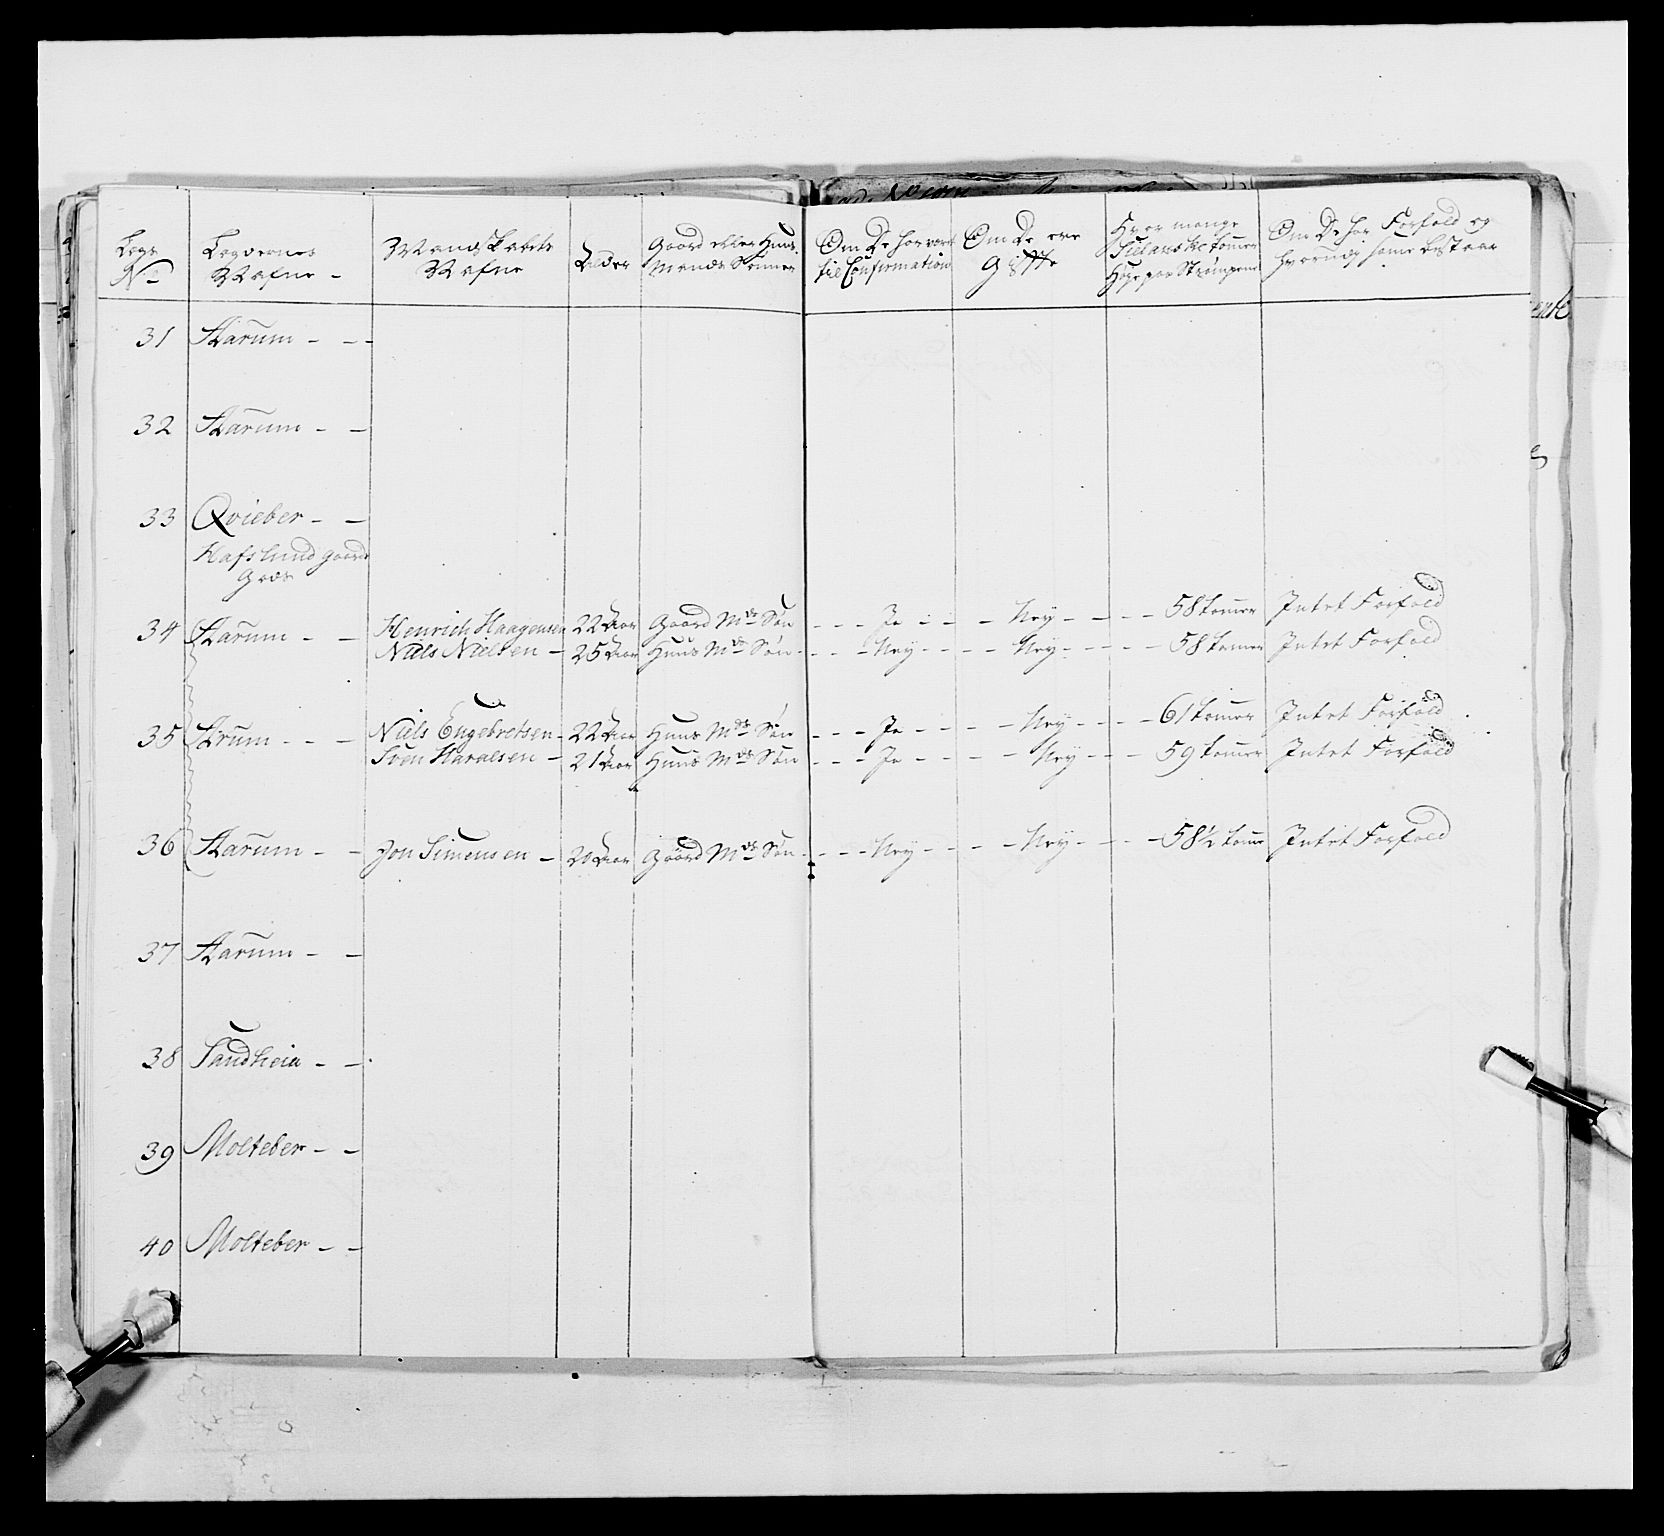 Legs No
Legdernes Nafne -
Mandskabets Nafne
Alder
Gaard eller Huus Mands Sønner
Om De har vært til Confirmation
Om De ere Gifte
Hvor mange Sielanske tomer Høye paa Strømpene
Om De har Forfald og hvorudj samme bestaar
31 Aarum - - -
32 Aarum - -
33 Qvieber - -
Hafslund gaards
Gods
34 Aarum - - Henrich Haagensen 22 Aar Gaard Mds Søn - - - Ja - - - Ney - - - - 58 tomer Intet Forfald
Niels Nielsen - 25 Aar Huus Mds Søn - - - - Ney - - - - Ney - - - - - 58 tomer Intet Forfald
35 Arum - - - Niels Engebretsen - 22 Aar Huus Mds Søn - - - Ja - - - - - Ney - - - - 61 tomer Intet Forfald
Sven Haralsen - 21 Aar Huus Mds Søn - - - Ja - - - - - Ney - - - 59 tomer Intet Forfald
36 Aarum - - Jon Simensen - 20 Aar Gaard Mds Søn - - - - Ney - - - - - Ney - - - - 58½ tome Intet Forfald
37 Aarum - -
38 Sandheia - -
39 Molteber - -
40 Molteber - -